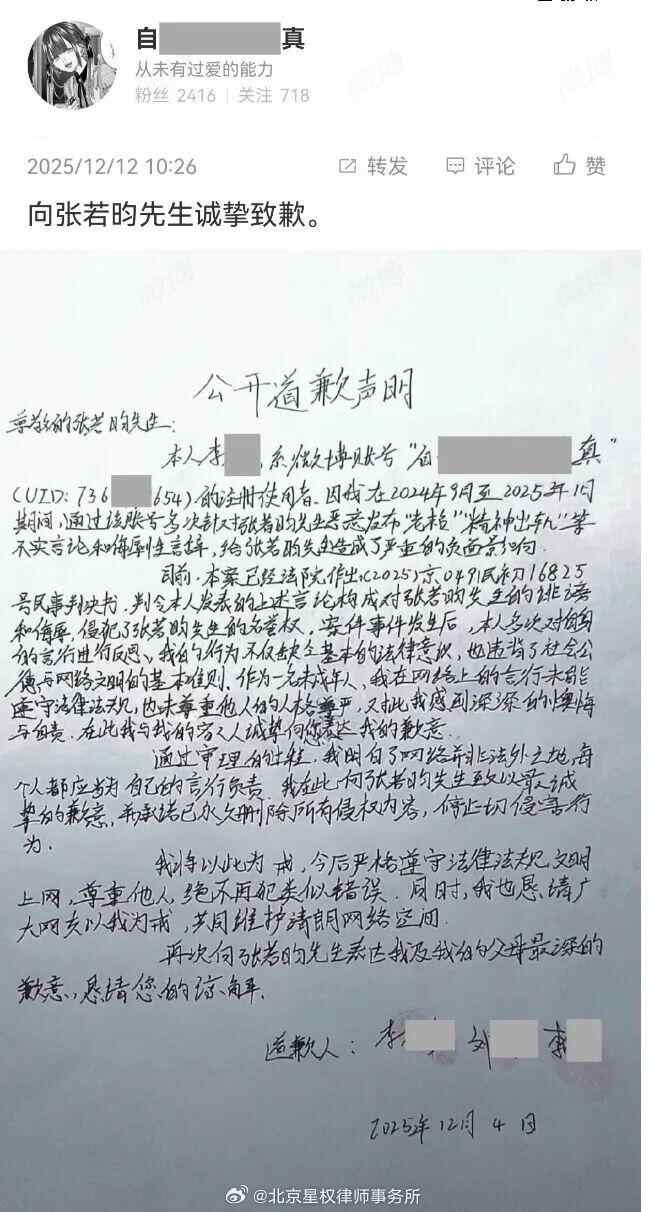 自 真
从未有过爱的能力
粉丝 2416 | 关注 718
2025/12/12 10:26 转发 评论 赞
向张若昀先生诚挚致歉。
公开道歉声明
尊敬的张若昀先生:
本人李 ,系微博账号“自 真”
(UID:736 654)的注册使用者。因我在2024年9月至2025年1月
期间,通过该账号多次针对张若昀先生恶意发布“老枪”“精神出轨”等
不实言论和侮辱性言辞,给张若昀先生造成了严重的负面影响。
目前,本案已经法院作出(2025)京0491民初16825
号民事判决书,判令本人发表的上述言论构成对张若昀先生的诽谤
和侮辱,侵犯了张若昀先生的名誉权。案件事件发生后,本人多次对自身
的言行进行反思。我的行为不仅缺乏基本的法律意识,也违背了社会公
德与网络文明的基本准则。作为一名未成年人,我在网络上的言行未能
遵守法律法规,也未尊重他人的人格尊严,对此我感到深深的懊悔
与自责。在此我与我的家人诚挚向您表达我的歉意。
通过审理的过程,我明白了网络并非法外之地,每
个人都应当为自己的言行负责。我在此向张若昀先生致以最诚
挚的歉意,并承诺已永久删除所有侵权内容,停止一切侵害行
为.
我将以此为戒,今后严格遵守法律法规,文明
上网,尊重他人,绝不再犯类似错误.同时,我也恳请广
大网友以我为戒,共同维护清朗网络空间.
再次向张若昀先生表达我及我的父母最深的
歉意,恳请您的谅解.
道歉人: 李 刘 李
2025年12月4日
@北京星权律师事务所